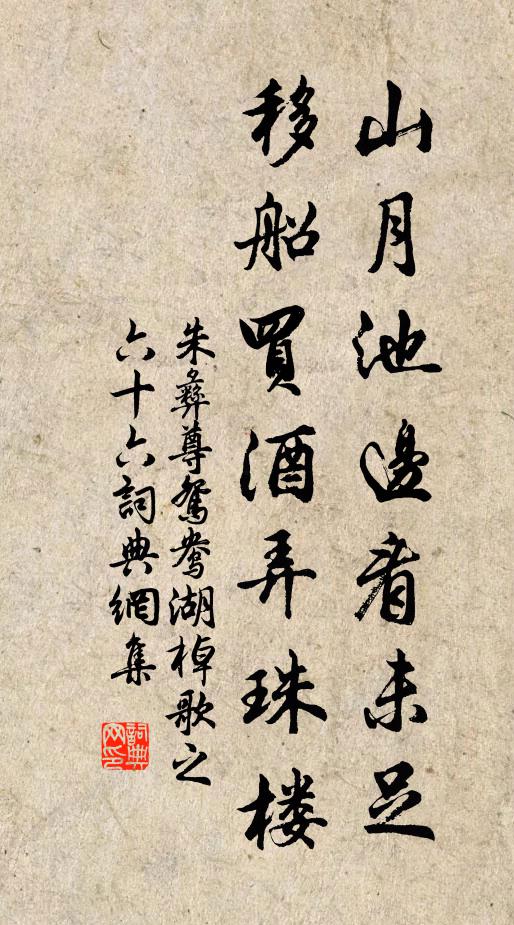 山月池邊看未足
移船買酒弄珠楼
朱彝尊鴛鴦湖棹歌之
六十六詞典網集
詞典网印